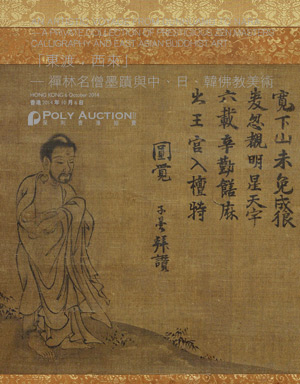 — A PRIVATE COLLECTION OF
CALLIGRAPHY AND EAST ASIAN BUDDHIST ART
「東渡·西來」
— 禪林名僧墨蹟與中、日、韓佛教美術
HONG KONG 6 October 2014
香港 2014 年 10 月 6 日
POLY AUCTION
寛下山未免成狼
忽覩明星天宇
六載辛勤餐麻
出王宫入檀特
圓覺
子曇拜讚